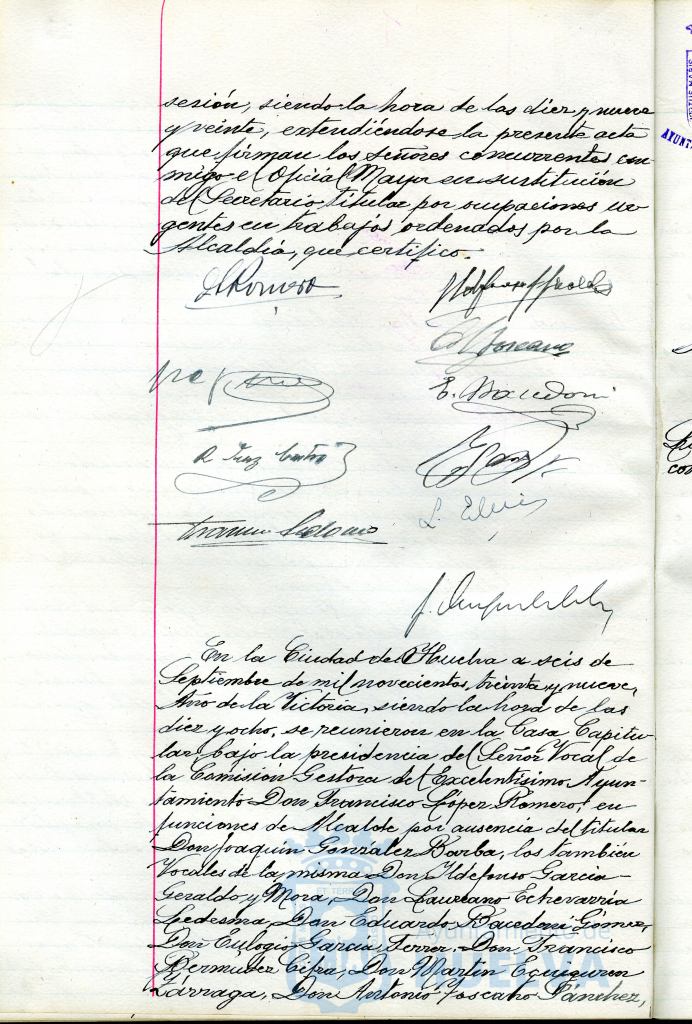 sesión, siendo la hora de las diez y nueve
y veinte, extendiéndose la presente acta
que firman los señores concurrentes con-
migo el Oficial Mayor en sustitución
del Secretario titular por ocupaciones ur-
gentes en trabajos ordenados por la
Alcaldía, que certifico.
E. Bacedoni
En la Ciudad de Huelva a seis de
Septiembre de mil novecientos treinta y nueve,
Año de la Victoria, siendo la hora de las
diez y ocho, se reunieron en la Casa Capitu-
lar, bajo la presidencia del Señor Vocal de
la Comisión Gestora del Excelentísimo Ayun-
tamiento Don Francisco López Romero, en
funciones de Alcalde por ausencia del titular
Don Joaquín González Barba, los también
Vocales de la misma Don Ildefonso García-
Geraldo y Mora, Don Laureano Echevarría
Ledesma, Don Eduardo Bacedoni Gómez,
Don Eulogio García Terror, Don Francisco
Bermúdez Cifra, Don Martín Eguiguren
Zárraga, Don Antonio Toscano Sánchez,
Ayuntamiento de
HUELVA